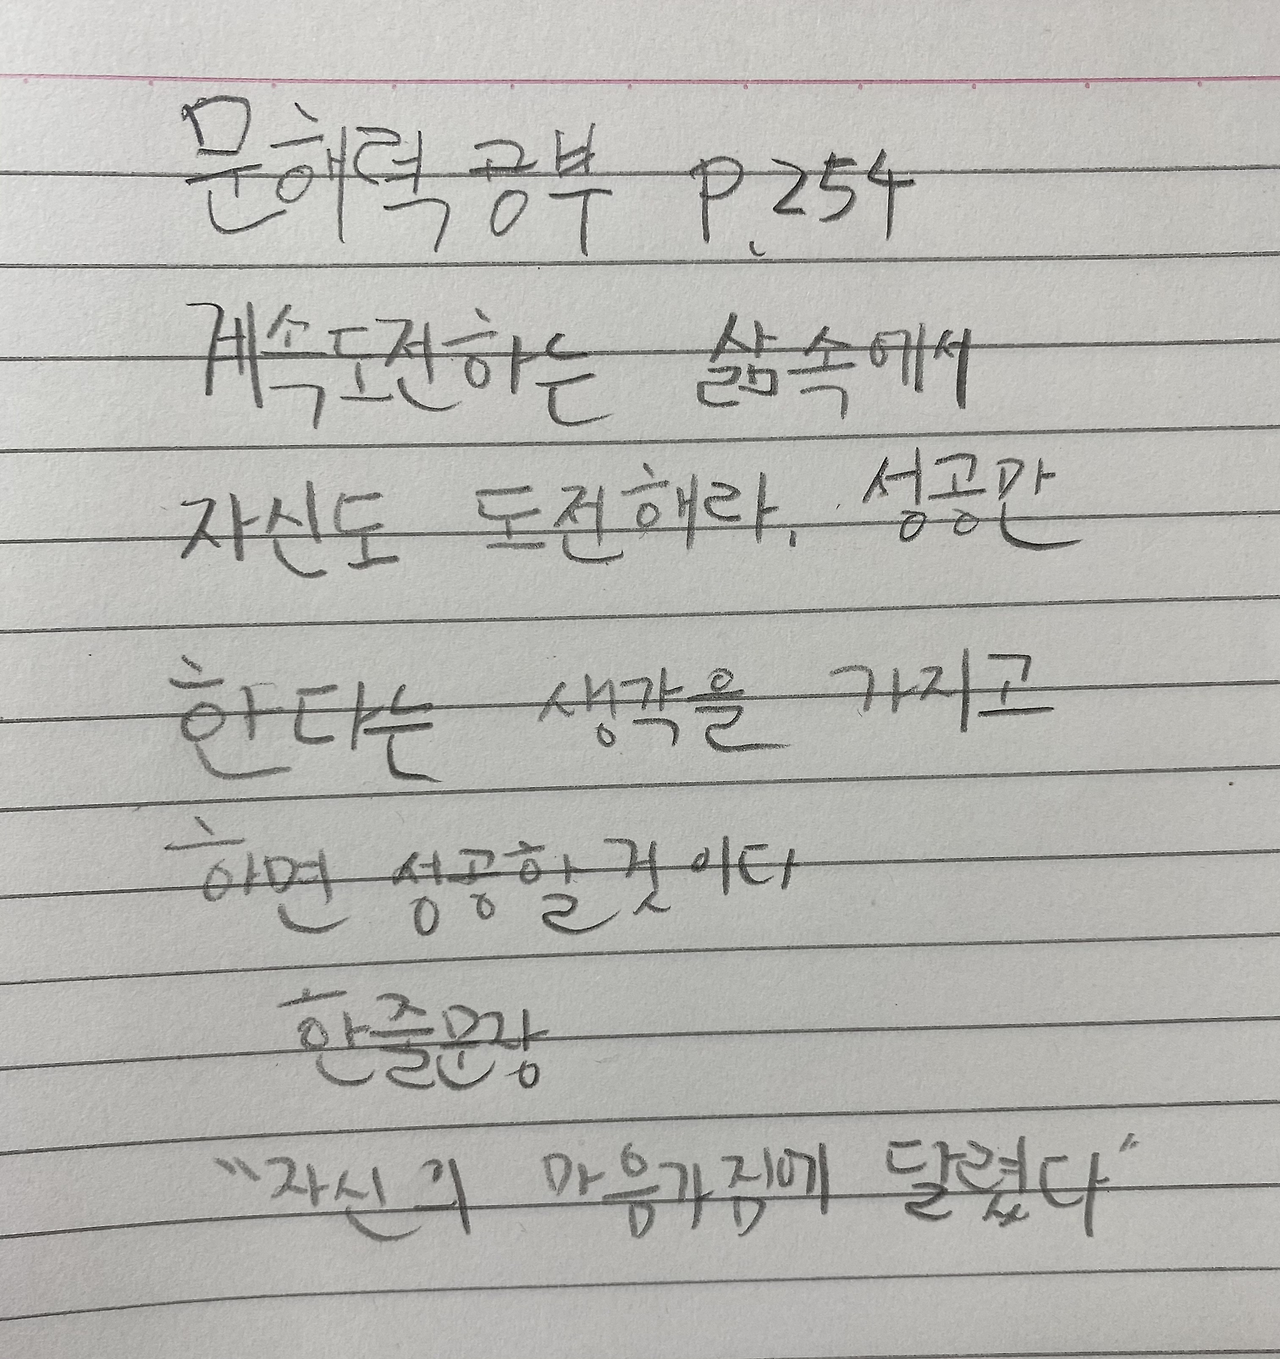 문해력 공부 P.254
계속도전하는 삶속에서
자신도 도전해라. 성공만
한다는 생각을 가지고
하면 성공할것이다
한줄문장
"자신의 마음가짐에 달렸다"